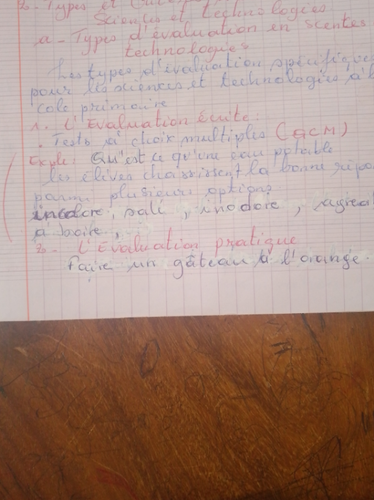 2- Types et
Sciences et technologies
a- Types d'évaluation en scientes
technologies
Les types d'évaluation spécifique
pour les sciences et technologies à l'é
cole primaire
1. L'Evaluation écrite :
. Tests à choix multiples (QCM)
Exple : Qu'est ce qu'une eau potable
les élèves choisissent la bonne répo
parmi plusieurs options
inodore, salé, inodore, agréa
à boire, ...
2- L'Evaluation pratique
Faire un gâteau à l'orange.